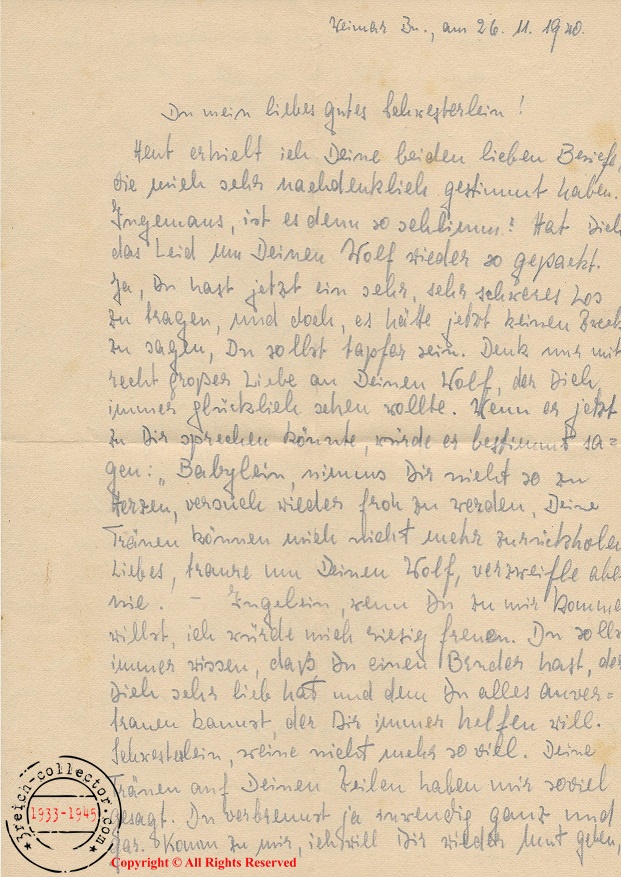 Weimar Bu., am 26. 11. 1940.
Du mein liebes gutes Schwesterlein!
Heut erhielt ich Deine beiden lieben Briefe,
die mich sehr nachdenklich gestimmt haben.
Ingemaus, ist es denn so schlimm? Hat Dich
das Leid um Deinen Wolf wieder so gepackt.
Ja, Du hast jetzt ein sehr, sehr schweres Los
zu tragen, und doch, es hätte jetzt keinen Zweck
zu sagen, Du sollst tapfer sein. Denk nur mit
recht großer Liebe an Deinen Wolf, der Dich
immer glücklich sehen wollte. Wenn er jetzt
zu Dir sprechen könnte, würde er bestimmt sa=
gen: „Babylein, nimms Dir nicht so zu
Herzen, versuch wieder froh zu werden, Deine
Tränen können mich nicht mehr zurückholen
Liebes, traure um Deinen Wolf, verzweifle aber
nie. – Ingelein, wenn Du zu mir komme
willst, ich würde mich riesig freuen. Du solls
immer wissen, daß Du einen Bruder hast, der
Dich sehr lieb hat und dem Du alles anver=
trauen kannst, der Dir immer helfen will.
Schwesterlein, weine nicht mehr so viel. Deine
Tränen auf Deinen Zeilen haben mir soviel
gesagt. Du verbrennst ja inwendig ganz und
gar. Komm zu mir, ich will Dir wieder Mut geben,
3reich-collector.com
1933-1945
Copyright © All Rights Reserved